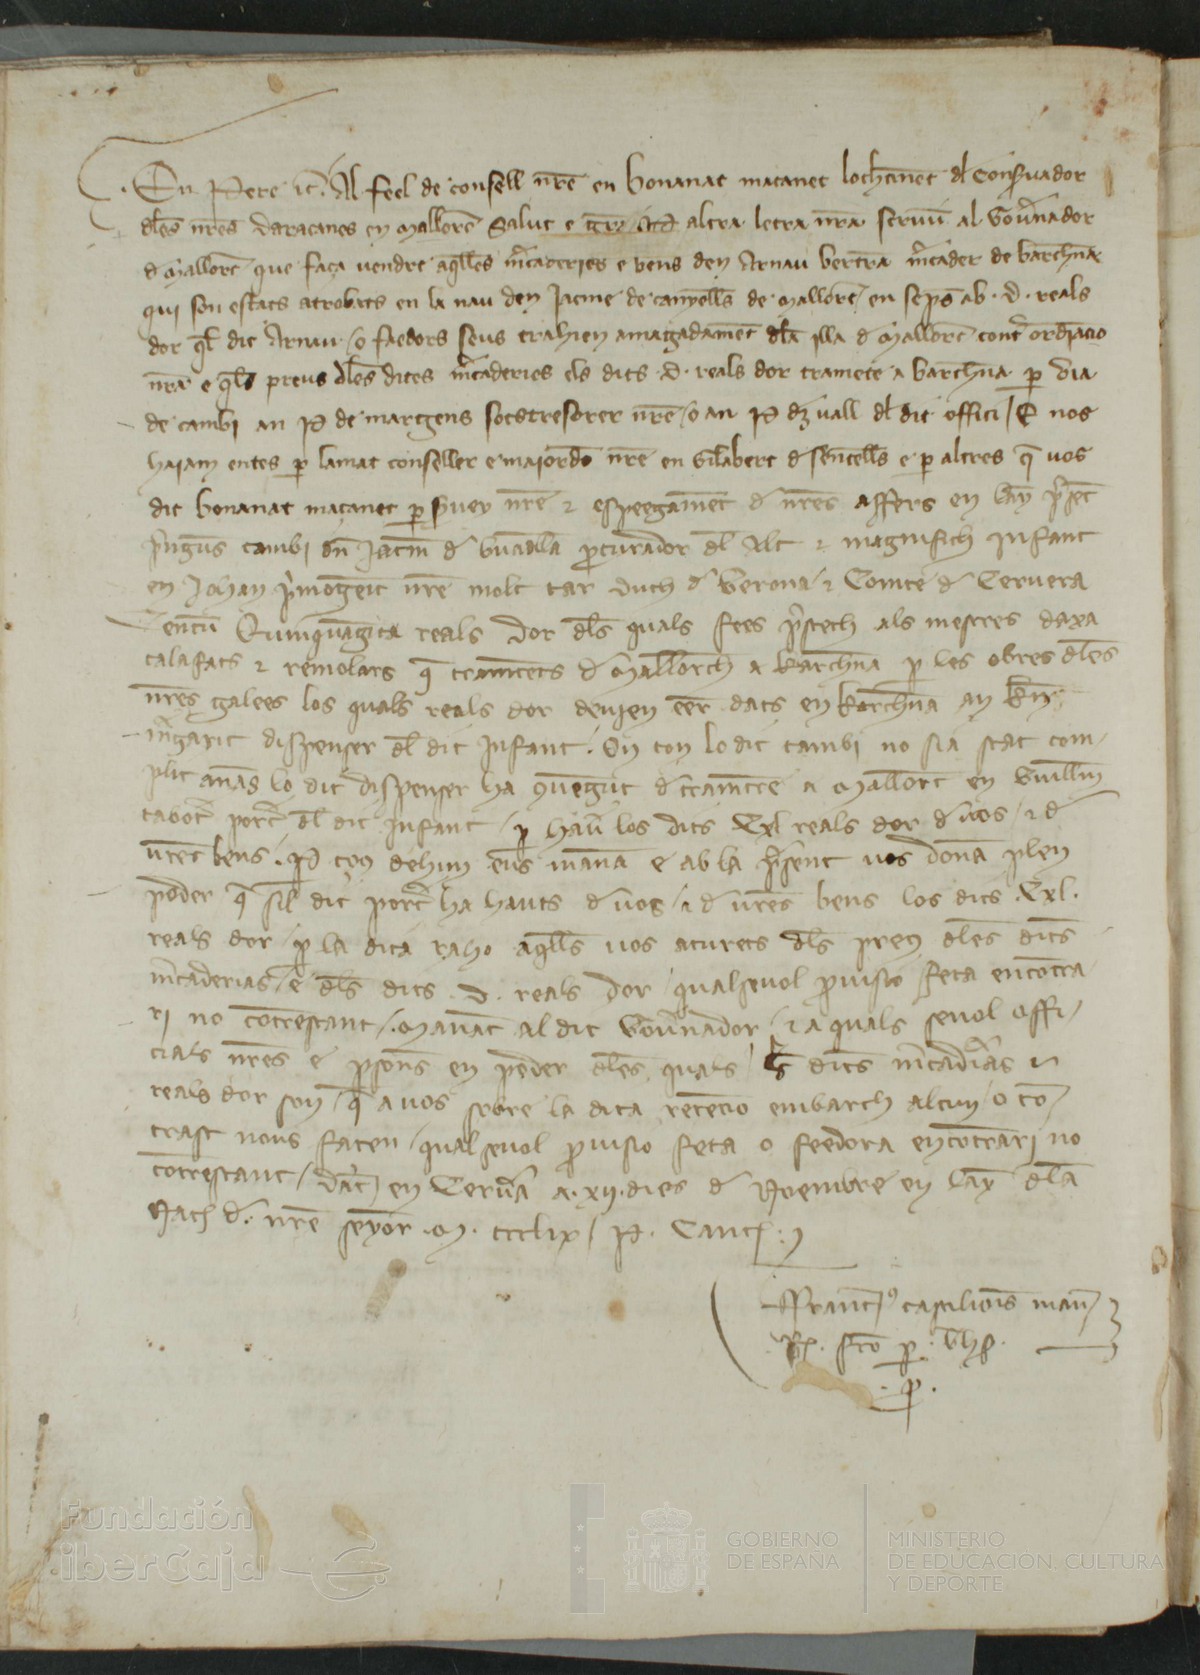 En Pere ic. Al feel de consell nre en bonanat maçanet lochtinet dl Consuador
dles nres daraçanes en Mallorc Salut e gra altra letra nra scriuim al Gouernador
d Mallorc que faça vendre aqlles mcaderies e bens den Arnau bertra mcader de barchna
qui son estats atrobats en la nau den Jacme de canyells de Mallorc en semps ab .D. reals
dor ql dit Arnau o faedors seus trahien amagadament dla illa d Mallorc cont ordinacio
nra e qls preus dles dites mcaderies els dits .D. reals dor trameta a barchna p via
de cambi an P de margens sotstresorer nre o an P dz vall dl dit offici E nos
haiam entes p lamat conseller e maiordo nre en Gilabert d sentells e p altres q vos
dit bonanat maçanet p suey nre e espeegament d nres affers en lany psent
prngus cambi den Jacm d procurador dl Alt e magnifich Infant
en Johan pmogenit nre molt car duch d Gerona e Comte d Ceruera
centu Quinquaginta reals dor dls quals fees pstech als mestres daxa
calafats e remolars q trametets d Mallorch a barchna p les obres dles
nres galees los quals reals dor deuien eer dats en barchna an
mgarit dispenser dl dit Infant. On con lo dit cambi no sia stat com
plit anas lo dit dispenser ha d trametre a Mallorc en Guillm
dl dit Infant p hau los dits CxL reals dor d uos e d
vres bens. P ço dehim e us mana e ab la psent uos dona plen
poder q sil dit port ha hauts d uos e d vres bens los dits CxL.
reals dor p la dita raho aqlls uos aturets dls preu dles dits
mcaderias e dls dits .D. reals dor qualseuol puisio feta encontra
ri no contrestant. Manat al dit Gouernador e a quals seuol offi
cials nres e psones en poder dles quals dits mcadias
reals dor son q a uos sobre la dita retencio embarch alcun o co
trast nous facen qualseuol puisio feta o feedora encontrari no
contrestant dat en Ceruera a .xij. dies d Noembre en lany dla
Nat d nre senyor .M. ccclix P. Canc.
Franc castilionis man
R. fco p.
.p.
Fundación
iberCaja
GOBIERNO
DE ESPAÑA
MINISTERIO
DE EDUCACIÓN, CULTURA
Y DEPORTE